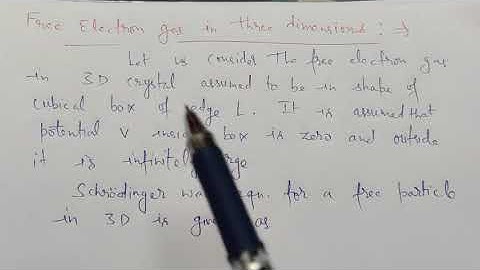 Free Electron gas in three dimensions : →
Let us consider the free electron gas
in 3D crystal assumed to be in shape of
cubical box of edge L. It is assumed that
potential V insi box is zero and outside
it is infinitely rge
Schrödinger wa eqn. for a free particle
in 3D is giv as